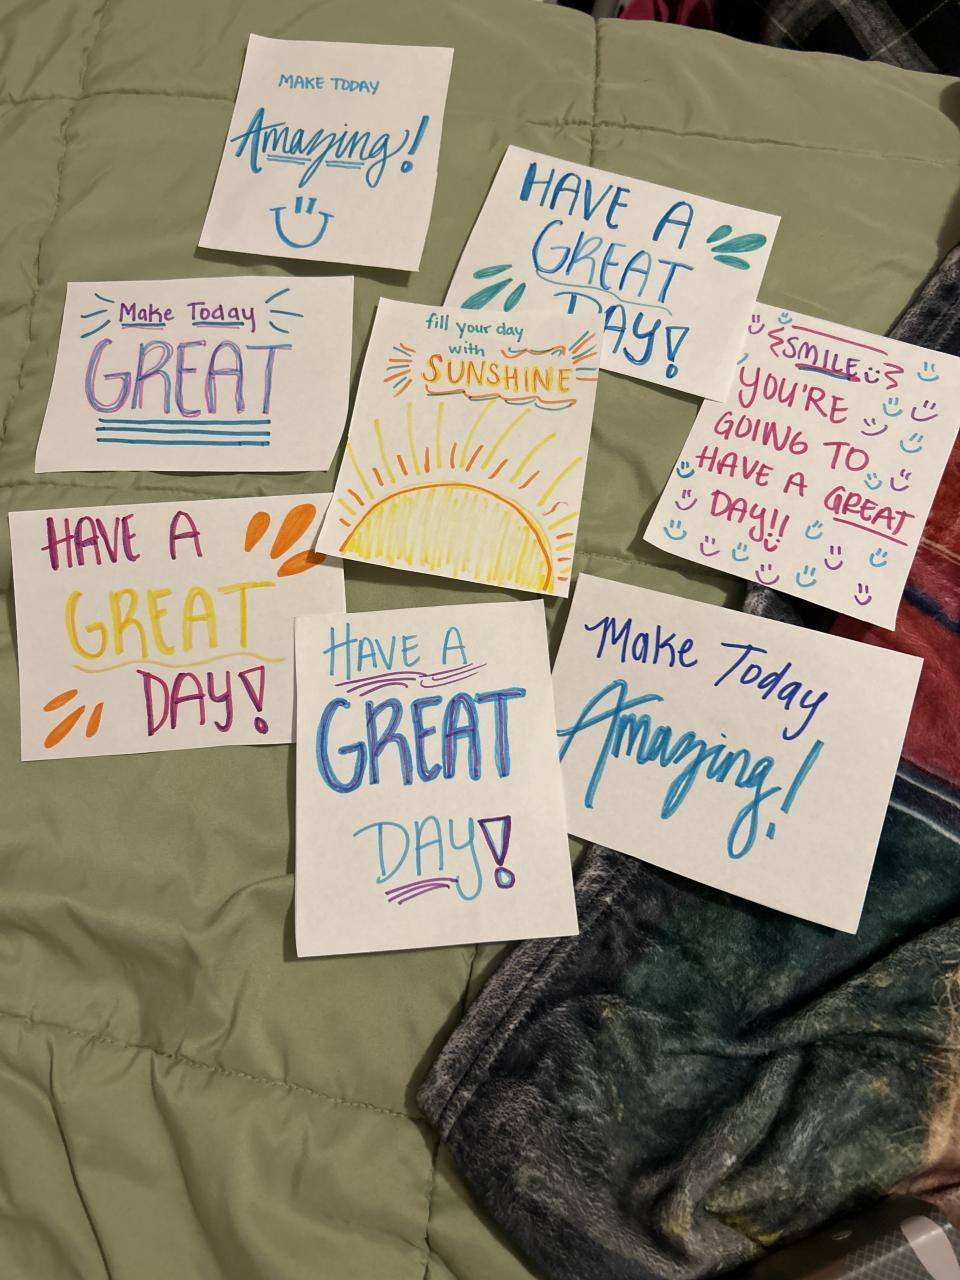 MAKE TODAY
Amazing!
HAVE A
GREAT
DAY!
Make Today
GREAT
fill your day
with
SUNSHINE
SMILE
YOU'RE
GOING TO
HAVE A GREAT
DAY!!
HAVE A
GREAT
DAY!
HAVE A
GREAT
DAY!
Make Today
Amazing!